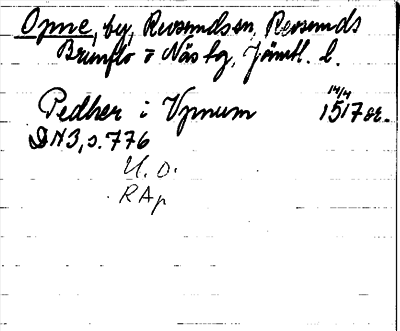 Opne, by, Revsundssn, Revsunds
Brunflo o Näs tg, Jämtl. l.
14/4
Pedher i Vpnum 1517 or.
DN3, s. 776
U. O.
RAp